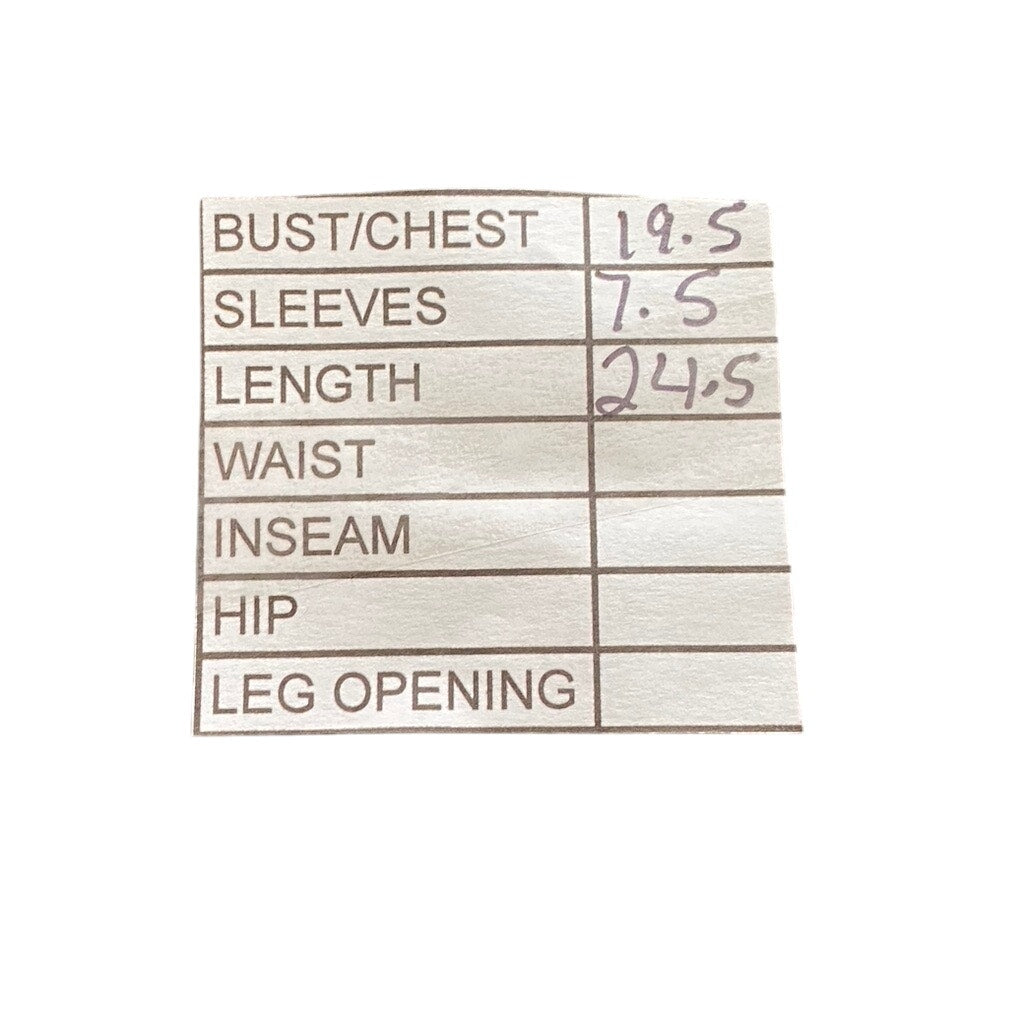 BUST/CHEST 19.5
SLEEVES 7.5
LENGTH 24.5
WAIST
INSEAM
HIP
LEG OPENING